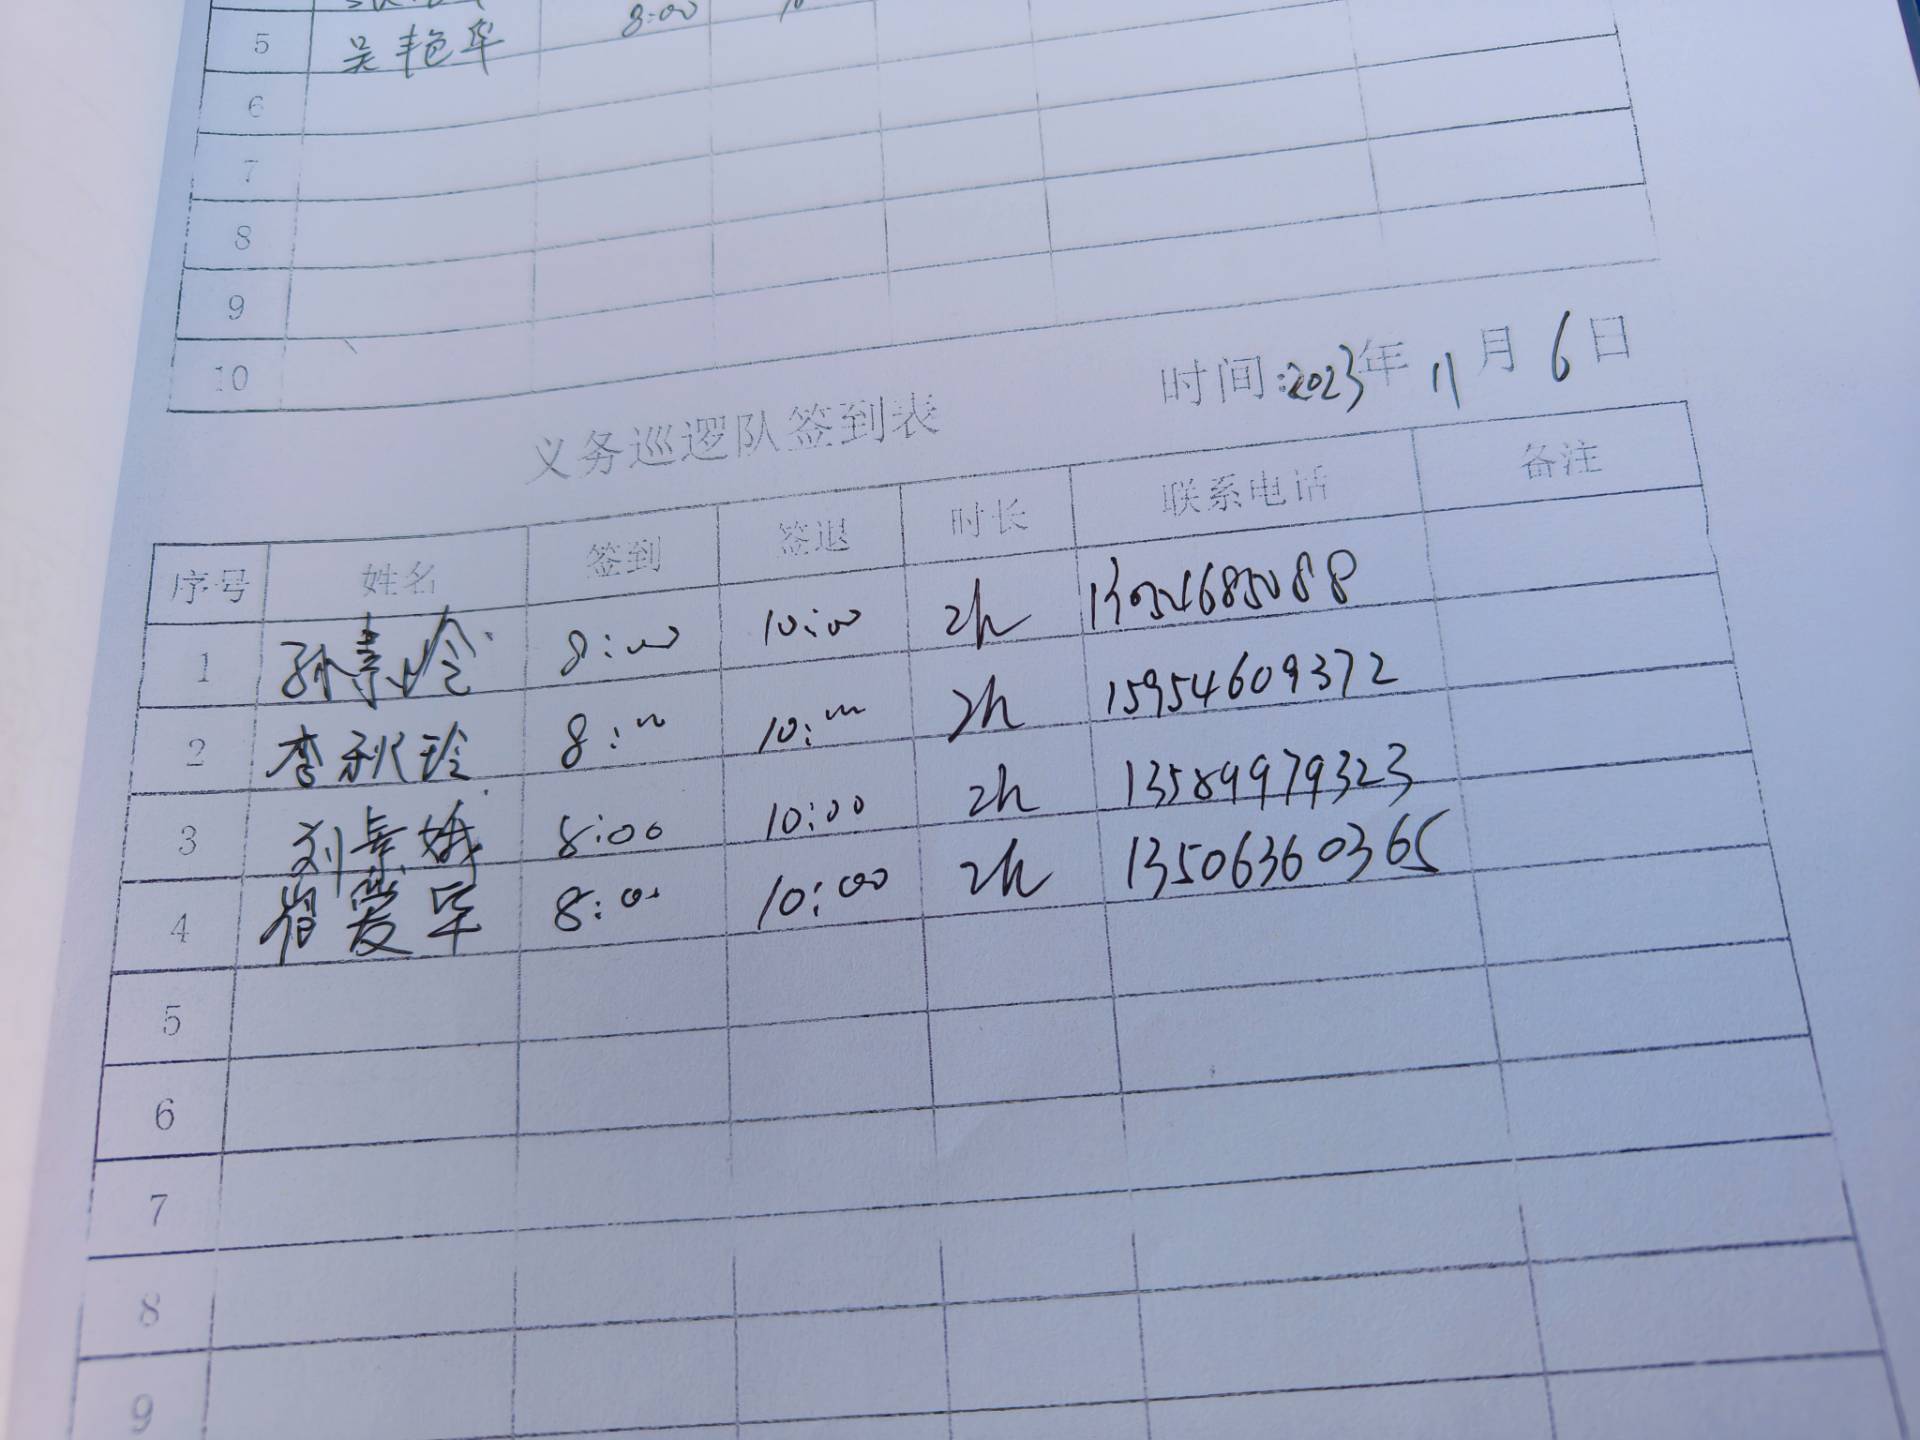 5 吴艳华 8:00
6
7
8
9
10
义务巡逻队签到表 时间:2023年11月6日
序号 姓名 签到 签退 时长 联系电话 备注
1 孙素玲 8:00 10:00 2h
2 李秋玲 8:00 10:00 2h 15954609372
3 刘景娥 8:00 10:00 2h 13589979323
4 崔爱军 8:00 10:00 2h 13506360365
5
6
7
8
9